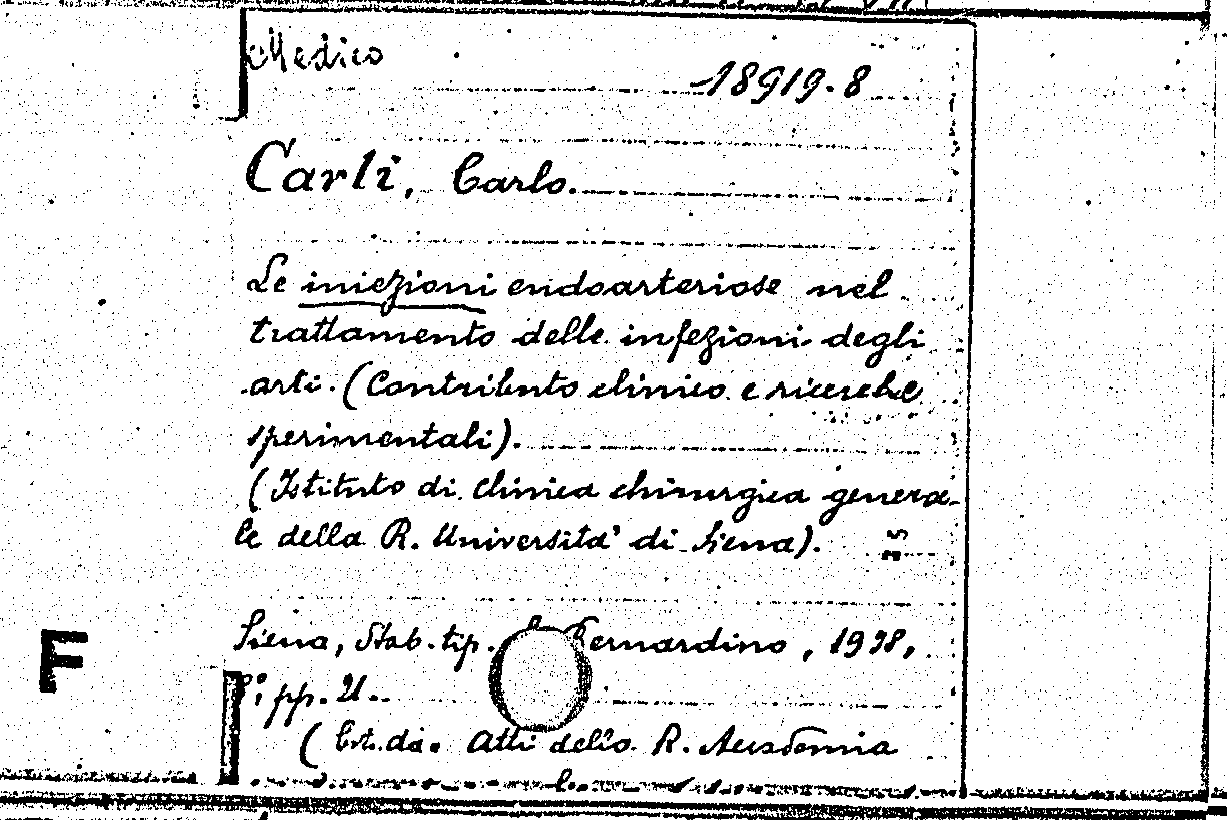 Medico
18919.8
Carli, Carlo.
Le iniezioni endoarteriose nel
trattamento delle infezioni degli
arti. (Contributo clinico e ricerche
sperimentali).
(Istituto di clinica chirurgica genera-
le della R. Università di Siena).
Siena, Stab. tip. Bernardino, 1938,
pp. 21.
(Est. da. Atti della R. Accademia
F